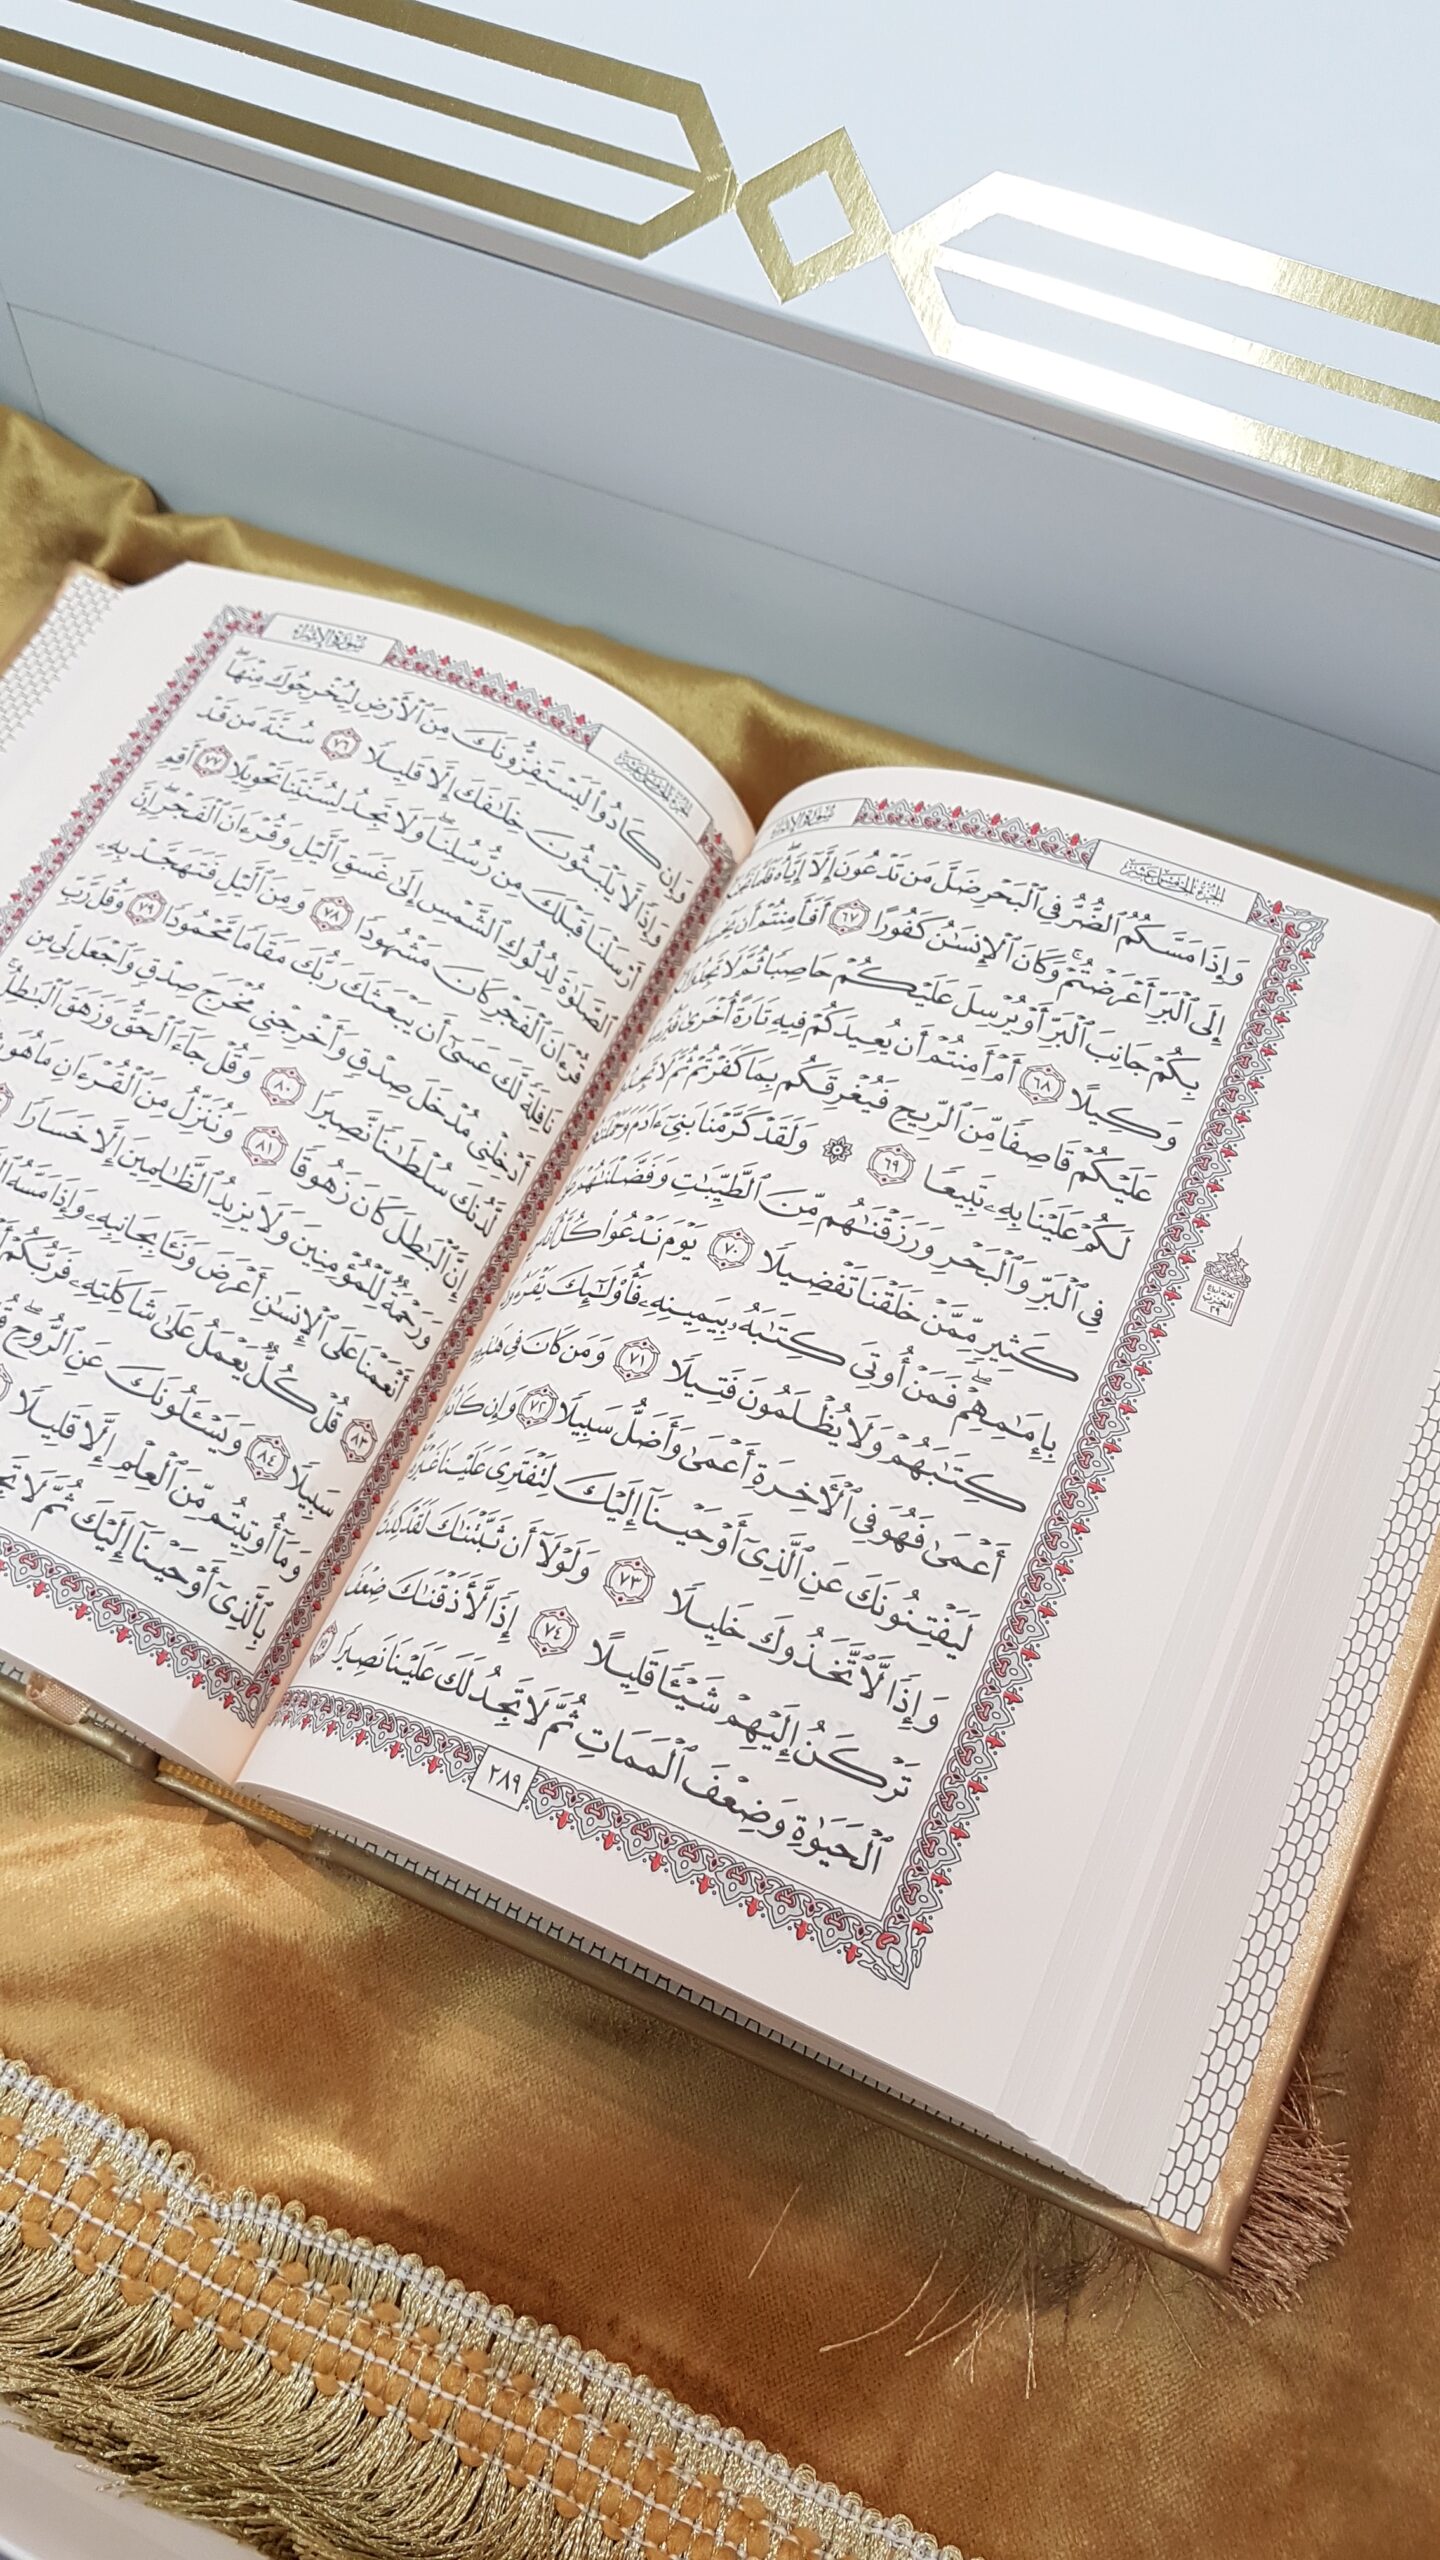 سُورَةُ الإِسْرَاءِ
الجُزْءُ الخَامِسَ عَشَرَ
وَإِذَا مَسَّكُمُ ٱلضُّرُّ فِي ٱلْبَحْرِ ضَلَّ مَن تَدْعُونَ إِلَّآ إِيَّاهُ ۖ فَلَمَّا
إِلَى ٱلْبَرِّ أَعْرَضْتُمْ ۚ وَكَانَ ٱلْإِنسَٰنُ كَفُورًا ٦٧ أَفَأَمِنتُمْ أَن
بِكُمْ جَانِبَ ٱلْبَرِّ أَوْ يُرْسِلَ عَلَيْكُمْ حَاصِبًا ثُمَّ لَا تَجِدُوا۟
وَكِيلًا ٦٨ أَمْ أَمِنتُمْ أَن يُعِيدَكُمْ فِيهِ تَارَةً أُخْرَىٰ
عَلَيْكُمْ قَاصِفًا مِّنَ ٱلرِّيحِ فَيُغْرِقَكُم بِمَا كَفَرْتُمْ ثُمَّ لَا
لَكُمْ عَلَيْنَا بِهِۦ تَبِيعًا ٦٩ ۞ وَلَقَدْ كَرَّمْنَا بَنِىٓ ءَادَمَ
فِي ٱلْبَرِّ وَٱلْبَحْرِ وَرَزَقْنَٰهُم مِّنَ ٱلطَّيِّبَٰتِ وَفَضَّلْنَٰهُمْ
كَثِيرٍ مِّمَّنْ خَلَقْنَا تَفْضِيلًا ٧٠ يَوْمَ نَدْعُوا۟ كُلَّ
بِإِمَٰمِهِمْ ۖ فَمَنْ أُوتِىَ كِتَٰبَهُۥ بِيَمِينِهِۦ فَأُو۟لَٰٓئِكَ يَقْرَءُونَ
كِتَٰبَهُمْ وَلَا يُظْلَمُونَ فَتِيلًا ٧١ وَمَن كَانَ فِي هَٰذِهِۦٓ
أَعْمَىٰ فَهُوَ فِي ٱلْأَخِرَةِ أَعْمَىٰ وَأَضَلُّ سَبِيلًا ٧٢ وَإِن كَادُوا۟
لَيَفْتِنُونَكَ عَنِ ٱلَّذِىٓ أَوْحَيْنَآ إِلَيْكَ لِتَفْتَرِىَ عَلَيْنَا غَيْرَهُۥ
وَإِذًا لَّٱتَّخَذُوكَ خَلِيلًا ٧٣ وَلَوْلَآ أَن ثَبَّتْنَٰكَ لَقَدْ كِدتَّ
تَرْكَنُ إِلَيْهِمْ شَيْـًٔا قَلِيلًا ٧٤ إِذًا لَّأَذَقْنَٰكَ ضِعْفَ
ٱلْحَيَوٰةِ وَضِعْفَ ٱلْمَمَاتِ ثُمَّ لَا تَجِدُ لَكَ عَلَيْنَا نَصِيرًا ٧٥
٢٨٩
ثلاثة أرباع
الحزب
٢٩
سُورَةُ الإِسْرَاءِ
الجُزْءُ الخَامِسَ عَشَرَ
وَإِن كَادُوا۟ لَيَسْتَفِزُّونَكَ مِنَ ٱلْأَرْضِ لِيُخْرِجُوكَ مِنْهَا ۖ
وَإِذًا لَّا يَلْبَثُونَ خِلَٰفَكَ إِلَّا قَلِيلًا ٧٦ سُنَّةَ مَن قَدْ
أَرْسَلْنَا قَبْلَكَ مِن رُّسُلِنَا ۖ وَلَا تَجِدُ لِسُنَّتِنَا تَحْوِيلًا ٧٧ أَقِمِ
ٱلصَّلَوٰةَ لِدُلُوكِ ٱلشَّمْسِ إِلَىٰ غَسَقِ ٱلَّيْلِ وَقُرْءَانَ ٱلْفَجْرِ ۖ إِنَّ
قُرْءَانَ ٱلْفَجْرِ كَانَ مَشْهُودًا ٧٨ وَمِنَ ٱلَّيْلِ فَتَهَجَّدْ بِهِۦ
نَافِلَةً لَّكَ عَسَىٰٓ أَن يَبْعَثَكَ رَبُّكَ مَقَامًا مَّحْمُودًا ٧٩ وَقُل رَّبِّ
أَدْخِلْنِي مُدْخَلَ صِدْقٍ وَأَخْرِجْنِي مُخْرَجَ صِدْقٍ وَٱجْعَل لِّي مِن
لَّدُنكَ سُلْطَٰنًا نَّصِيرًا ٨٠ وَقُلْ جَآءَ ٱلْحَقُّ وَزَهَقَ ٱلْبَٰطِلُ ۚ
إِنَّ ٱلْبَٰطِلَ كَانَ زَهُوقًا ٨١ وَنُنَزِّلُ مِنَ ٱلْقُرْءَانِ مَا هُوَ
وَرَحْمَةٌ لِّلْمُؤْمِنِينَ وَلَا يَزِيدُ ٱلظَّٰلِمِينَ إِلَّا خَسَارًا
أَنْعَمْنَا عَلَى ٱلْإِنسَٰنِ أَعْرَضَ وَنَـَٔا بِجَانِبِهِۦ وَإِذَا مَسَّهُ
٨٣ قُلْ كُلٌّ يَعْمَلُ عَلَىٰ شَاكِلَتِهِۦ فَرَبُّكُمْ
سَبِيلًا ٨٤ وَيَسْـَٔلُونَكَ عَنِ ٱلرُّوحِ ۖ
وَمَآ أُوتِيتُم مِّنَ ٱلْعِلْمِ إِلَّا قَلِيلًا
بِٱلَّذِىٓ أَوْحَيْنَآ إِلَيْكَ ثُمَّ لَا